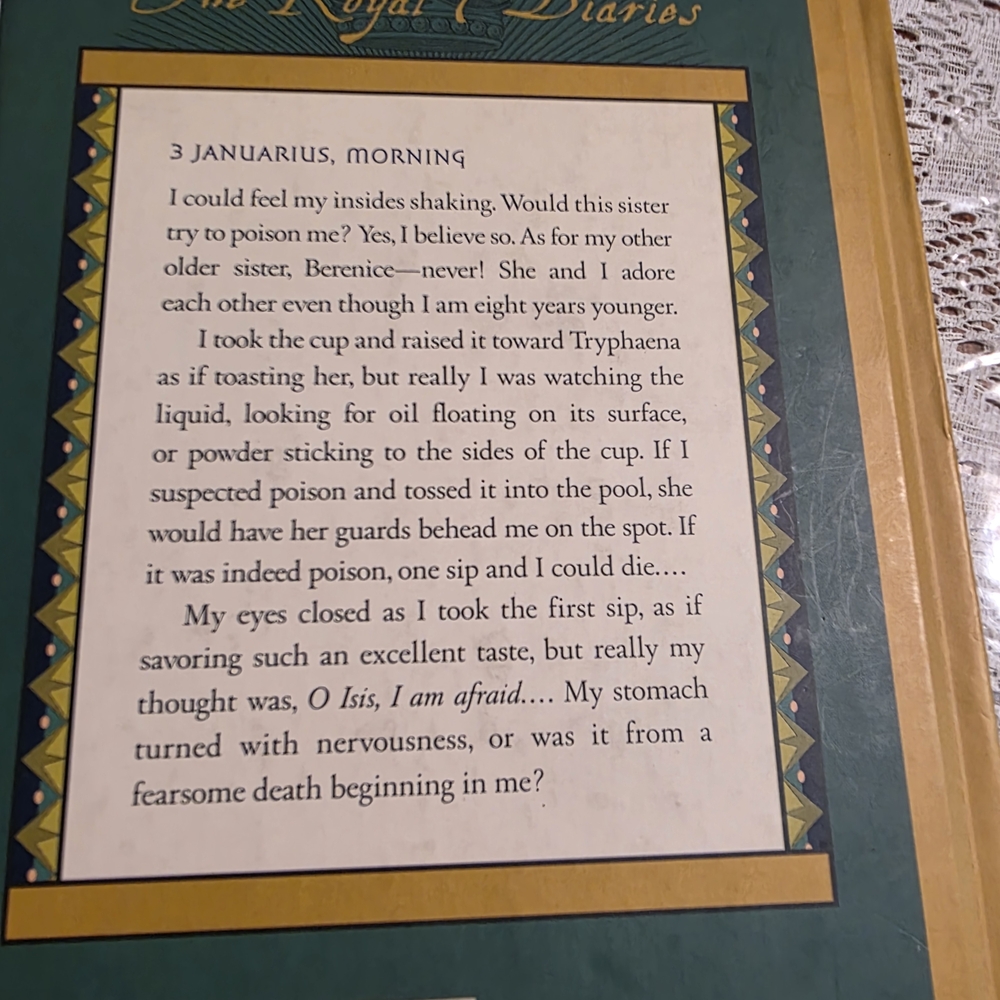 The Royal Diaries
3 JANUARIUS, MORNING
I could feel my insides shaking. Would this sister
try to poison me? Yes, I believe so. As for my other
older sister, Berenice—never! She and I adore
each other even though I am eight years younger.
I took the cup and raised it toward Tryphaena
as if toasting her, but really I was watching the
liquid, looking for oil floating on its surface,
or powder sticking to the sides of the cup. If I
suspected poison and tossed it into the pool, she
would have her guards behead me on the spot. If
it was indeed poison, one sip and I could die....
My eyes closed as I took the first sip, as if
savoring such an excellent taste, but really my
thought was, O Isis, I am afraid.... My stomach
turned with nervousness, or was it from a
fearsome death beginning in me?